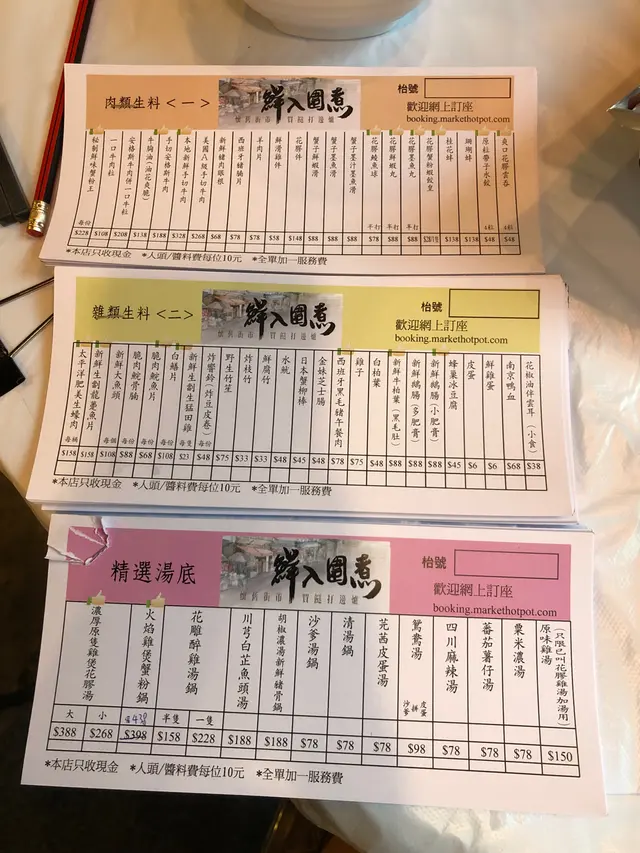 肉類生料<一>
鮮入圍煮
懷舊街市 買餸打邊爐
枱號
歡迎網上訂座
booking.markethotpot.com
秘制鮮味蟹粉王 每份 $228
一口牛肉粒 $108
安格斯牛肉併一口牛粒 $208
牛胸油(油花爽脆) $138
手切安格斯牛肉 $188
本地新鮮手切牛肉 $328
美國八級手切牛肉 $268
新鮮豬肉眼根 $68
西班牙豬腩片 $78
羊肉片 $78
鮮滑雞件 $58
花膠件 $148
蟹子鮮蝦滑 $88
蟹子墨魚滑 $88
蟹子墨汁墨魚滑 $88
花膠鯪魚球 手打 $78
花膠鮮蝦丸 手打 $88
花膠墨魚丸 手打 $88
花膠蟹粉蝦餃皇
桂花蚌 $138
珊瑚蚌 $138
原粒帶子水餃 4粒 $48
爽口花膠雲吞 4粒 $48
*本店只收現金 *人頭/醬料費每位10元 *全單加一服務費
雜類生料<二>
鮮入圍煮
懷舊街市 買餸打邊爐
枱號
歡迎網上訂座
booking.markethotpot.com
太平洋肥美生蠔肉 每桶 $158
新鮮生劏龍躉魚片 $158
新鮮大魚頭 每個 $108
脆肉鯇骨腩 每份 $88
脆肉鯇魚片 每份 $68
白鱔片 每份 $108
新鮮生劏生猛田雞 每隻 $23
炸響鈴(炸豆皮卷) 每份 $48
野生竹笙 $75
炸枝竹 $33
鮮腐竹 $33
水魷 $48
日本蟹柳棒 $45
金妹芝士腸 $48
西班牙黑毛豬午餐肉 $78
雞子 $75
白柏葉 $48
新鮮牛柏葉(黑毛肚) $88
新鮮鵝腸(多肥膏) $88
新鮮鵝腸(小肥膏) $88
蜂巢冰豆腐 $45
皮蛋 $6
鮮雞蛋 $6
南京鴨血 $68
花椒油伴雲耳(小食) $38
*本店只收現金 *人頭/醬料費每位10元 *全單加一服務費
精選湯底
鮮入圍煮
懷舊街市 買餸打邊爐
枱號
歡迎網上訂座
booking.markethotpot.com
濃厚原隻雞煲花膠湯 大 $388 小 $268
火焰雞煲蟹粉鍋 $398
花雕醉雞湯鍋 半隻 $158 一隻 $228
川芎白芷魚頭湯 $188
胡椒濃湯新鮮豬骨鍋 $188
沙爹湯鍋 $78
清湯鍋 $78
芫茜皮蛋湯 $78
鴛鴦湯 沙爹拼皮蛋 $98
四川麻辣湯 $78
蕃茄薯仔湯 $78
粟米濃湯 $78
原味雞湯(只限已叫花膠雞湯加湯用) $150
*本店只收現金 *人頭/醬料費每位10元 *全單加一服務費